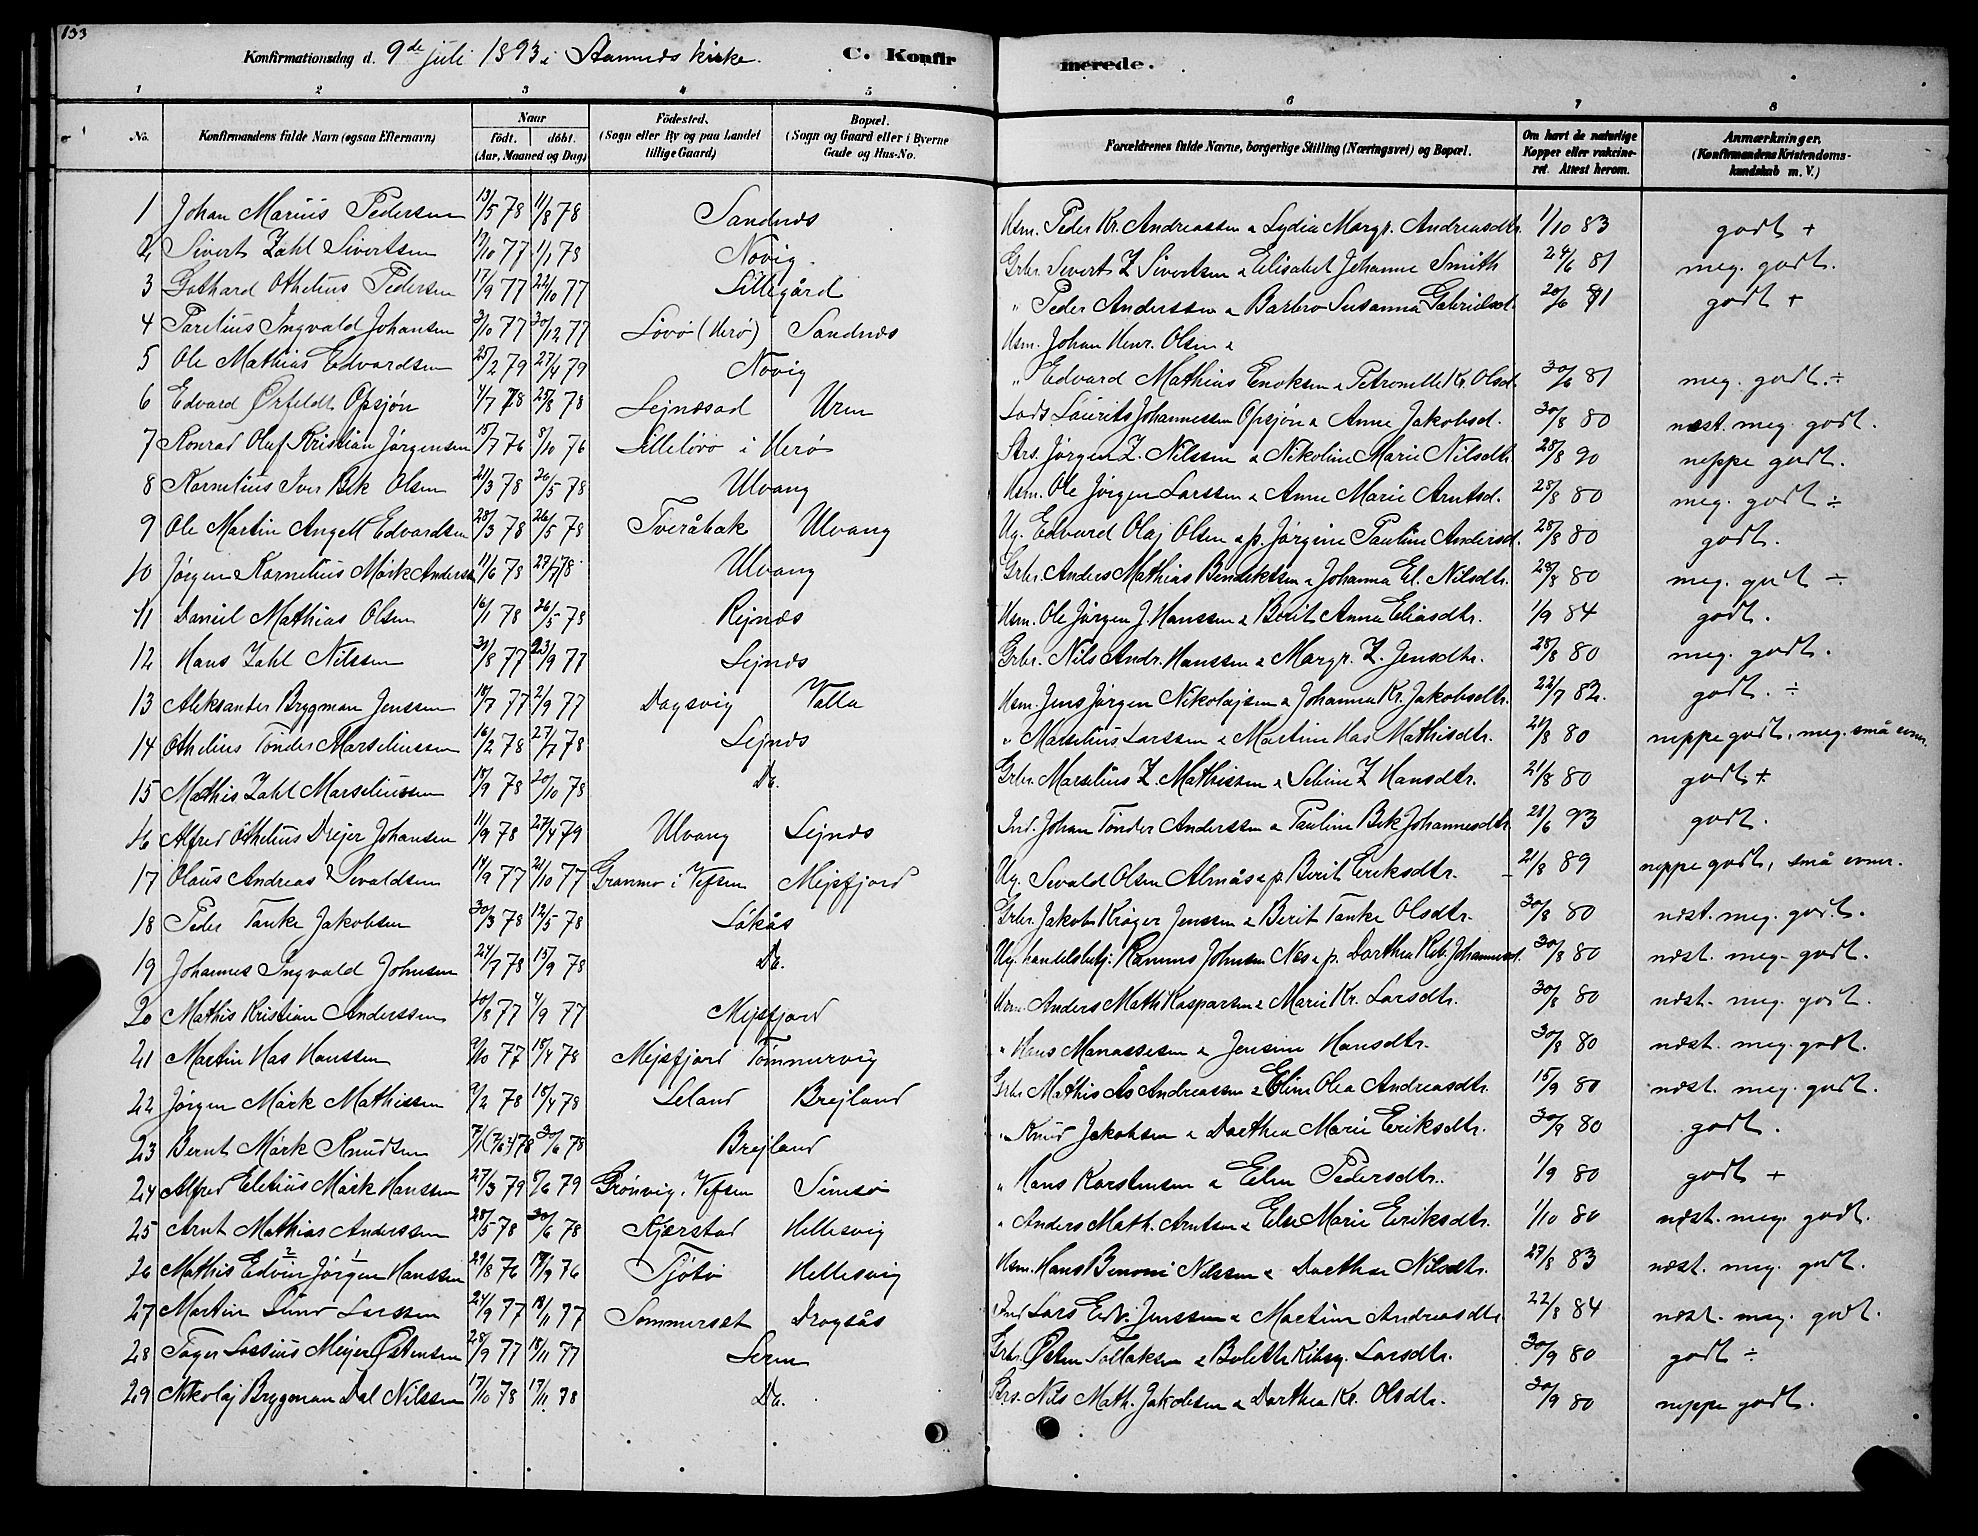 133
Konfirmationsdag d. 9de juli 1893 i kirke. C. Konfirmerede.
1 2 3 4 5 6 7 8
No. Konfirmandens fulde Navn (ogsaa Efternavn) Naar født. døbt. (Aar, Maaned og Dag) Fødested. (Sogn eller By og paa Landet tillige Gaard) Bopæl. (Sogn og Gaard eller i Byerne Gade og Hus-No. Forældrenes fulde Navne, borgerlige Stilling (Næringsvei) og Bopæl. Om havt de naturlige Kopper eller vakcineret. Attest herom. Anmærkninger. (Konfirmandens Kristendomskundskab m. V.)
1 Johan Marius Pedersen 13/5 78 11/8 78 Sandnæs Hsm. Peder Kr. Andreassen & Lydia Margr. Andreasdtr. 1/10 83 godt +
2 Sivert Zahl Sivertsen /10 77 1/1 78 Novig Grbr. Sivert Z Sivertsen & Elisabet Johanne Smith 24/6 81 meg. godt.
3 Gothard Othelius Pedersen 17/9 77 22/10 77 Lillegård " Peder Anderssen & Barbro Susanna Gabrielsd. 20/6 godt +
4 Parelius Ingvald Johansen 3/10 77 30/12 77 Lovø (Herø) Sandnæs Hsm. Johan Henr. Olsen &
5 Ole Mathias Edvardsen 25/2 79 27/4 79 Novig " Edvard Mathias Enoksen & Petronelle Kr. Olsd. 30/6 81 meg. godt. ÷
6 Edvard Ørfeldt Opsjøn 4/7 78 25/8 78 Lejnæsod Uren Lods Laurits Johannessen Opsjøn & Anne Jakobsd. 30/8 80 næst. meg. godt.
7 Konrad Oluf Kristian Jørgensen 15/7 76 8/10 76 Lilleløvø i Herø Strs. Jørgen Z. Nilssen & Nikoline Marie Nilsdtr 28/8 90 neppe godt.
8 Kornelius Iver Bek Olsen 21/3 78 20/5 78 Ulvang Hsm. Ole Jørgen Larssen & Anne Marie Arntsd. 28/8 80 meg. godt ÷
9 Ole Martin Angell Edvardsen 28/3 78 26/5 78 Tveråbak Ulvang Ug. Edvard Olaj Olsen & p. Jørgine Pauline Andersd. 28/8 80 godt.
10 Jørgen Kornelius Mörk Anderss 11/6 78 Ulvang Grbr. Anders Mathias Bendiktsen & Johanna El. Nilsdtr. 28/8 80 meg. godt ÷
11 Daniel Mathias Olsen 16/1 78 26/5 78 Rejnæs Hsm. Ole Jørgen J. Hanssen & Berit Anna Eliasdtr. 1/9 84 godt.
12 Hans Zahl Nilssen 30/8 77 23/9 77 Lejnæs Grbr. Nils Andr. Hanssen & Margr. Z. Jensdtr. 28/8 80 meg. godt.
13 Aleksander Brygman Jenssen 18/7 77 2/9 77 Dagsvig Valla Hsm. Jens Jørgen Nikolajsen & Johanna Kr. Jakobsdtr. 22/7 82. godt. ÷
14 Othelius Tønder Marseliussen 16/2 78 27/7 78 Lejnæs " Marselius Larssen & Martine Has Mathisdtr. 21/8 80 neppe godt, meg. små evner.
15 Mathis Zahl Marseliussen 18/9 78 20/10 78 Do. Grbr. Marselius Z. Mathissen & Seline Z Hansdtr. 21/8 80 godt +
16 Alfred Othelius Drejer Johansen 11/9 78 27/4 79 Ulvang Lejnæs Ind. Johan Tönder Anderssen & Pauline Bek Johannesdtr 28/6 93 godt.
17 Olaus Andreas Sevaldsen 14/9 77 21/10 77 Granmo i Vefsen Mejsfjord Ug. Sevald Olsen Almås & p. Berit Eriksdtr. 21/8 89 neppe godt, små evner.
18 Peder Tanke Jakobsen 30/3 78 12/5 78 Løkås Grbr. Jakob Krøger Jenssen & Berit Tanke Olsdtr. 30/8 80 næst. meg. godt.
19 Johannes Ingvald Johnsen 24/7 78 15/9 78 Do. Ug. handelsbetj. Rasmus Johnsen Næs & p. Dorthea Reb. Johannesd. 30/8 80 næst. meg. godt.
20 Mathis Kristian Anderssen 10/8 77 4/9 77 Mejsfjord Hsm. Anders Math Kasparsen & Marie Kr. Larsdtr. 30/8 80 næst. meg. godt.
21 Martin Has Hanssen 9/10 77 18/4 78 Mejsfjord Tømmervig " Hans Manassesen & Jensine Hansdtr. 30/8 80 næst. meg. godt.
22 Jørgen Mörk Mathissen 9/2 78 18/4 78 Leland Brejland Grbr Mathis Ås Andreassen & Eline Olea Andreasdtr. 15/9 80 næst. meg. godt.
23 Bernt Mörk Knudsen 78 30/6 78 Brejland " Knud Jakobsen & Dorthea Marie Eriksdtr. 30/9 80 godt.
24 Alfred Eletius Mörk Hanssen 27/3 79 8/6 79 Grönvig, Vefsen Simsø " Hans Karstensen & Elen Pedersdtr. 1/9 80 godt +
25 Arnt Mathias Anderssen 28/5 78 30/6 78 Kjærstad Hellesvig " Anders Math. Arntsen & Else Marie Eriksdtr. 1/10 80 næst. meg. godt.
26 Mathis Edvin Jørgen Hanssen 29/8 76 19/9 76 Tjøtø Hellesvig Hsm. Hans Benoni Nilssen & Dorthea Nilsdtr. 27/8 83 næst. meg. godt.
27 Martin Lund Larssen 24/9 77 18/11 77 Sommerset Dragsås Ind Lars Edv. Jenssen & Martine Andreasdtr. 22/8 84 næst. meg. godt.
28 Tøger Lassius Mejer Østensen 28/9 77 18/11 77 Leren Grbr. Østen Tollaksen & Bolette Larsdtr. 30/9 80 godt ÷
29 Nikolaj Brygman Dal Nilssen 17/10 78 17/11 78 Do. Strs. Nils Math. Jakobsen & Dorthea Kr. Olsdtr. 30/9 80 neppe godt.